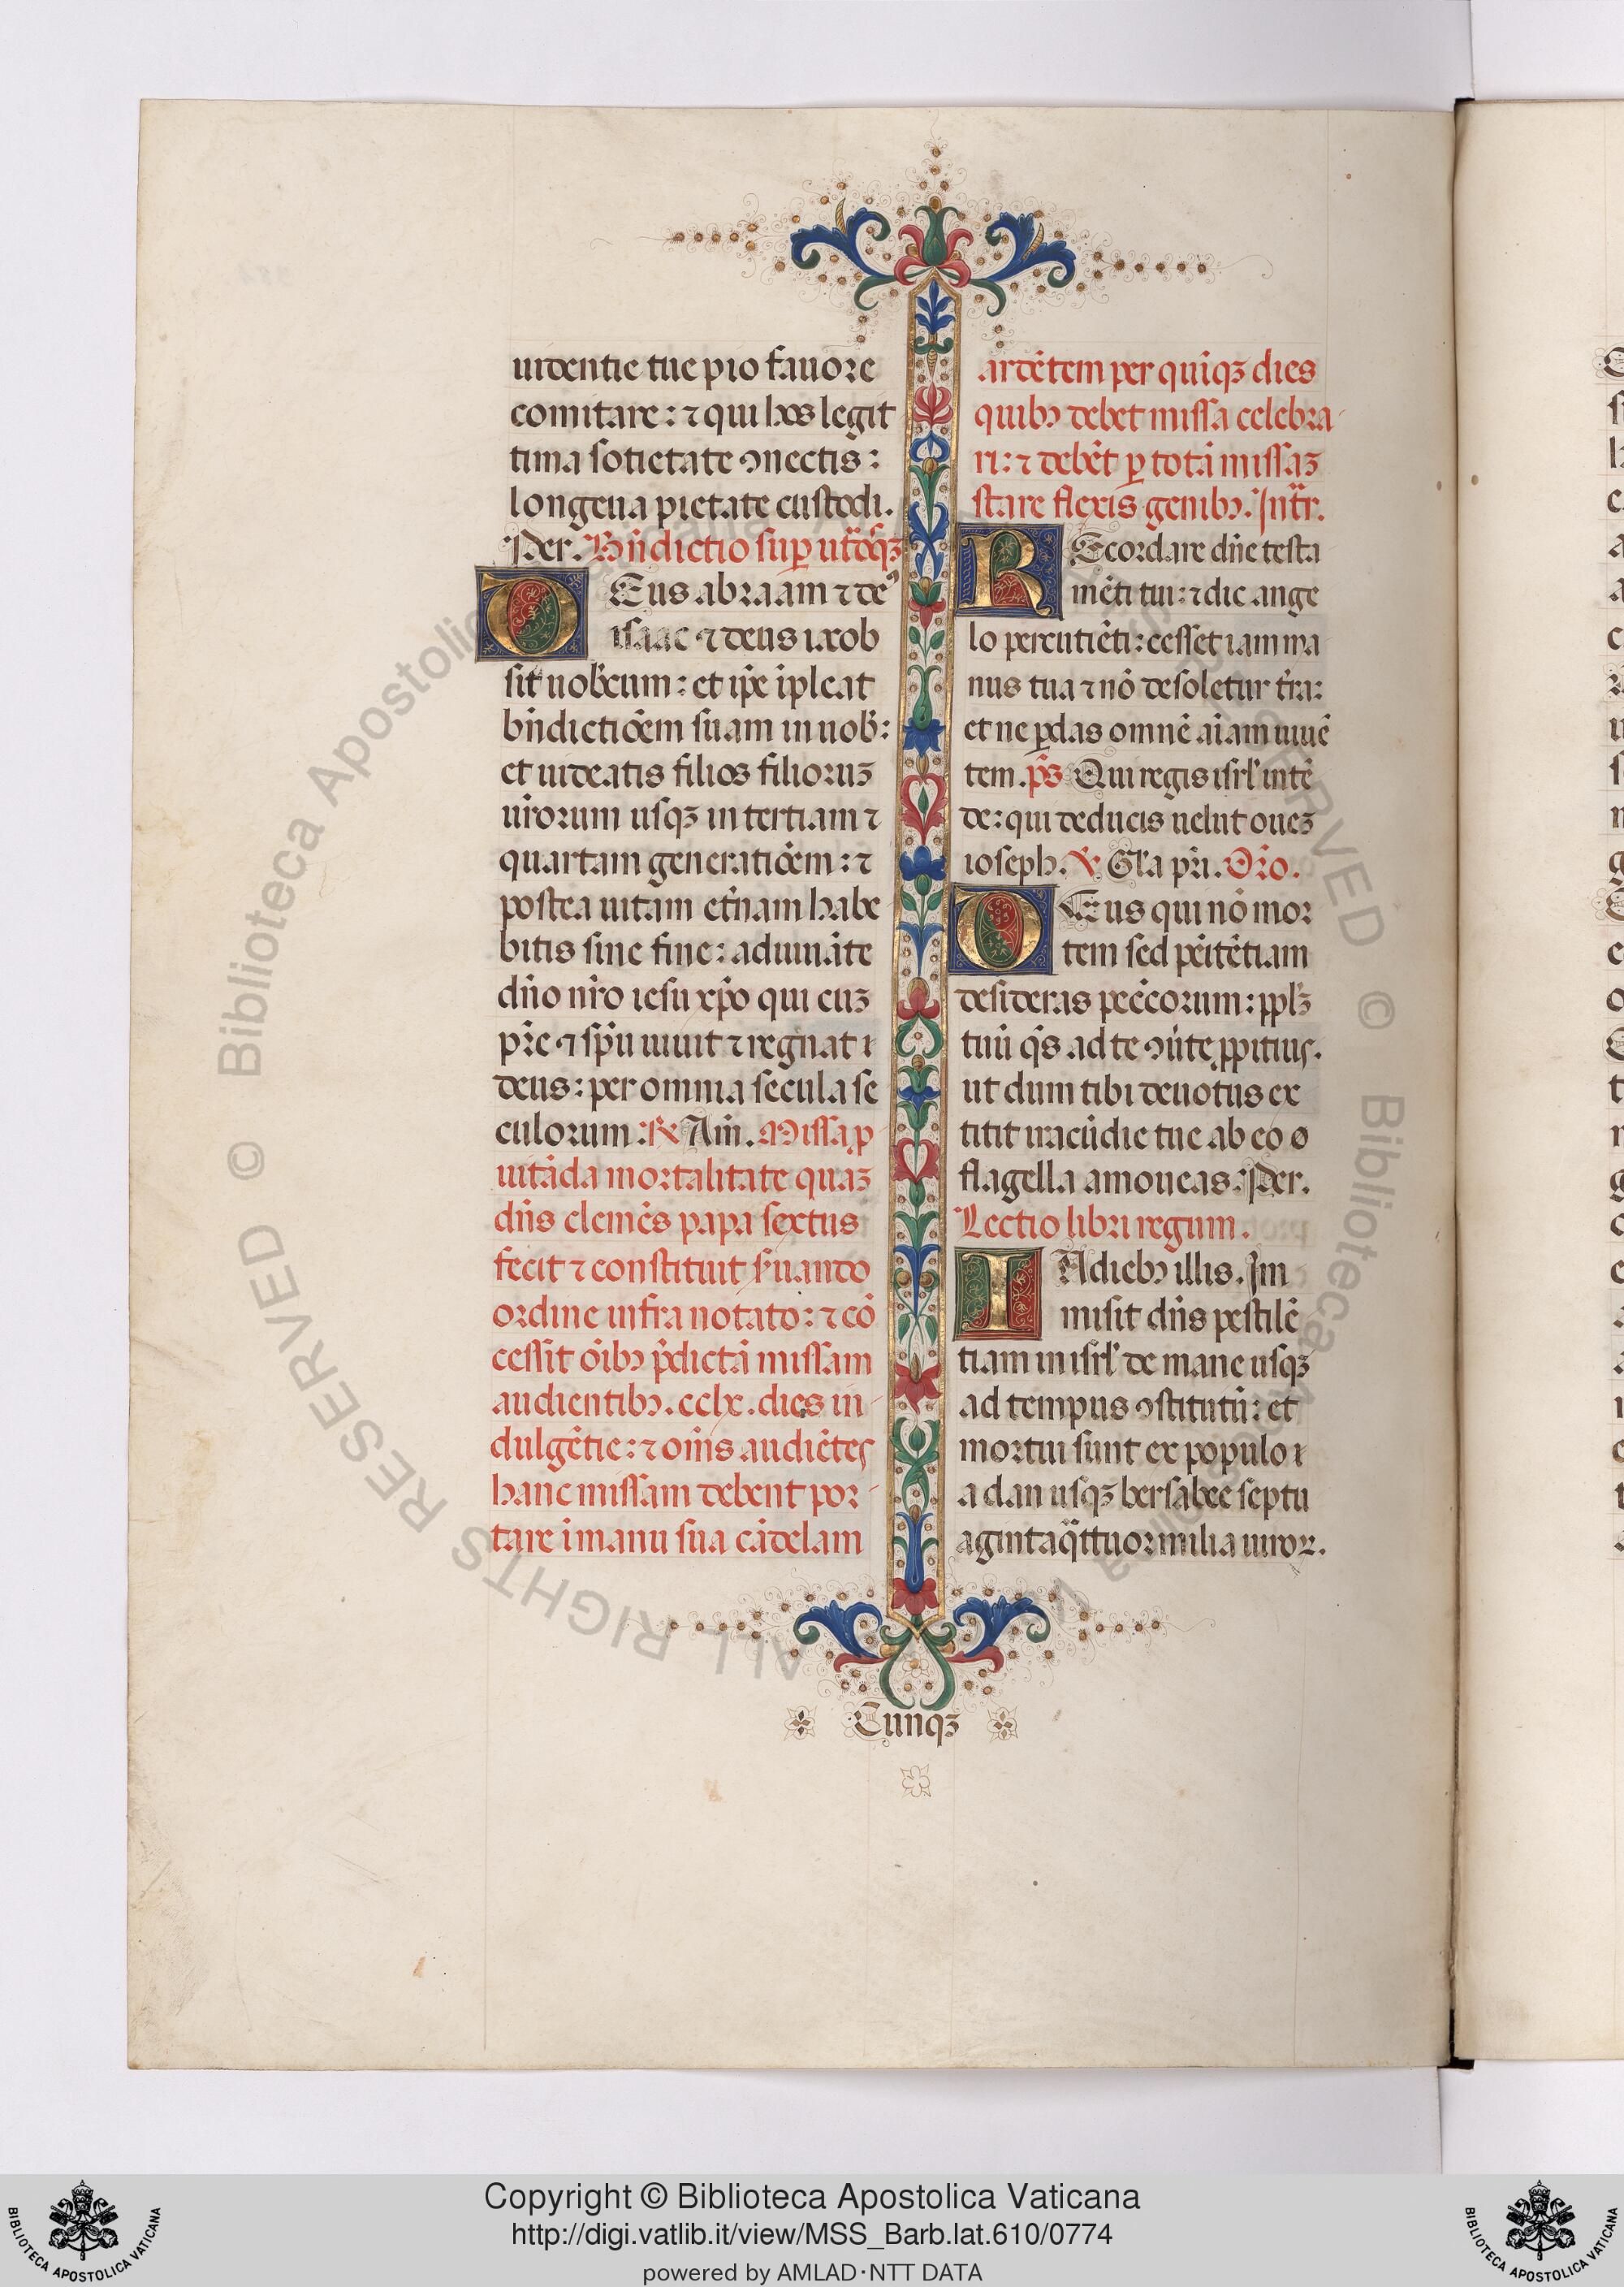 urdentie tue pio fauore
comitare: ⁊ qui hos legit
tima sotietate ꝯnectis:
longeua pietate custodi.
Per. Bn̄dictio suꝑ utrosqꝫ
DEus abraam ⁊ deꝰ
isaac ⁊ deus iacob
sit uobcum: et ip̄e īpleat
bn̄dictiōem suam in uob:
et uideatis filios filioruꝫ
ur̄orum usqꝫ in tertiam ⁊
quartam generatiōem: ⁊
postea uitam et̄nam habe
bitis sine fine: adiuuāte
dn̄o nr̄o iesu xp̄o qui cuꝫ
pr̄e ⁊ sp̄u uiuit ⁊ regnat
deus: per omnia secula se
culorum: ℟ Am̄. Missa ꝓ
uitāda mortalitate quaꝫ
dn̄s clemēs papa sextus
fecit ⁊ constituit s̄uando
ordine infra notato: ⁊ cō
cessit ōibꝫ p̄dictā missam
audientibꝫ. cclx. dies in
dulgētie: ⁊ om̄s audiētes
hanc missam debent por
tare ī manu sua cādelam
ardētem per quīqꝫ dies
quibꝫ debet missa celebra
ri: ⁊ debēt ꝑ totā missaꝫ
stare flexis genibꝫ. Intr̄.
REcordare dn̄e testa
mēti tui: ⁊ dic ange
lo percutiēti: cesset iam ma
nus tua ⁊ nō desoletur tr̄a:
et ne ꝑdas omnē aīam uiuē
tem. ps̄ Qui regis isrl̄ intē
de: qui deducis uelut oueꝫ
ioseph. ℣ Gl̄a pr̄i. Or̄o.
DEus qui nō mor
tem sed pēitētiam
desideras pec̄corum: ppl̄ꝫ
tuū q̄s ad te ꝯūte ꝓpitius.
ut dum tibi deuotus ex
titit iracūdie tue ab eo
flagella amoueas. Per.
Lectio libri regum.
IN diebꝫ illis. Im
misit dn̄s pestilē
tiam in isrl̄ de mane usqꝫ
ad tempus ꝯstitutū: et
mortui sunt ex populo
a dan usqꝫ bersabee septu
aginta q̄ttuor milia uiroꝝ.
Cunqꝫ
© Biblioteca Apostolica Vaticana
ALL RIGHTS RESERVED
Copyright © Biblioteca Apostolica Vaticana
http://digi.vatlib.it/view/MSS_Barb.lat.610/0774
powered by AMLAD·NTT DATA
BIBLIOTECA APOSTOLICA VATICANA
BIBLIOTECA APOSTOLICA VATICANA